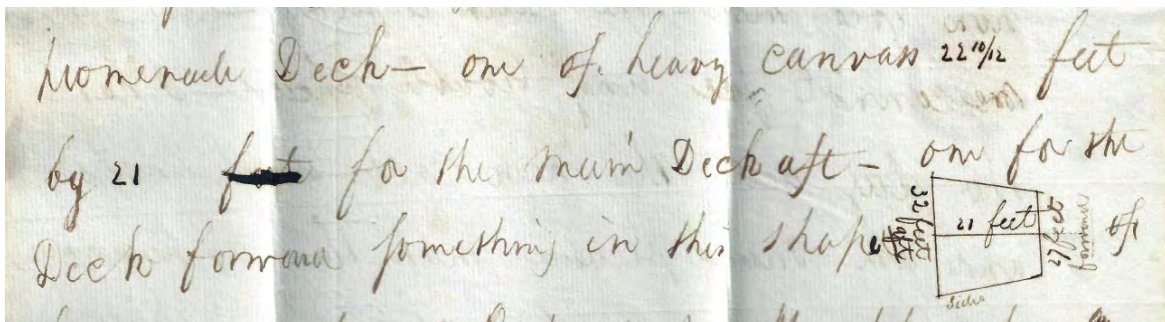 promenade Deck — one of heavy canvass 22 10/12 feet
by 21 for the main Deck aft — one for the
Deck forward something in this shape of
32 feet aft
21 feet
forward
sides